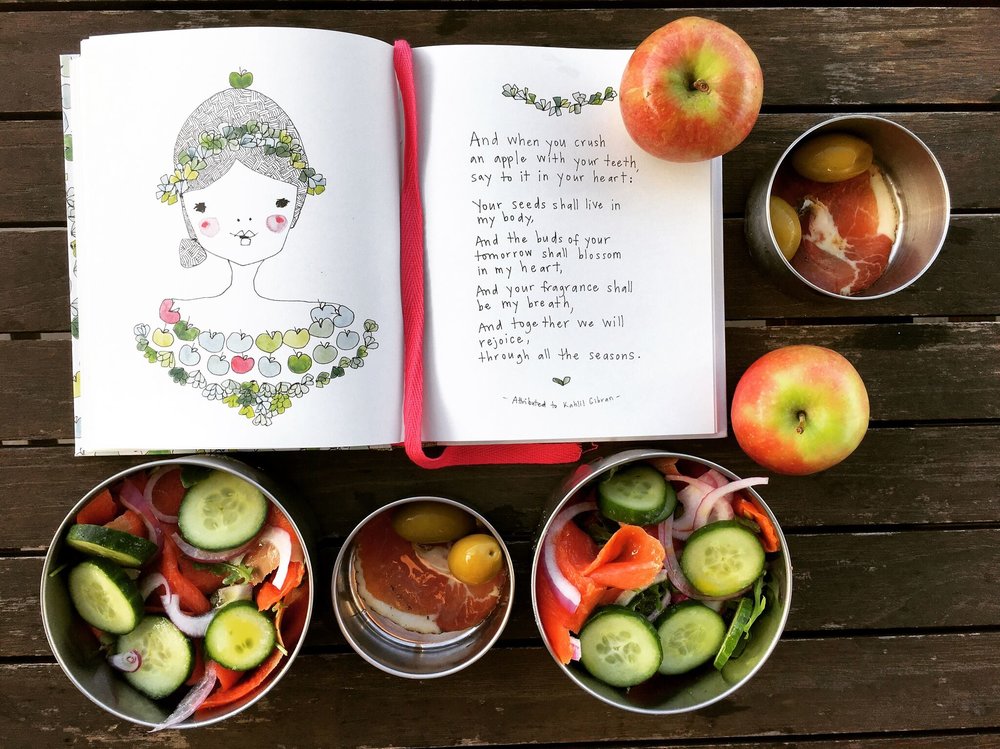 And when you crush
an apple with your teeth,
say to it in your heart:
Your seeds shall live in
my body,
And the buds of your
tomorrow shall blossom
in my heart,
And your fragrance shall
be my breath,
And together we will
rejoice,
through all the seasons.
- Attributed to Kahlil Gibran -